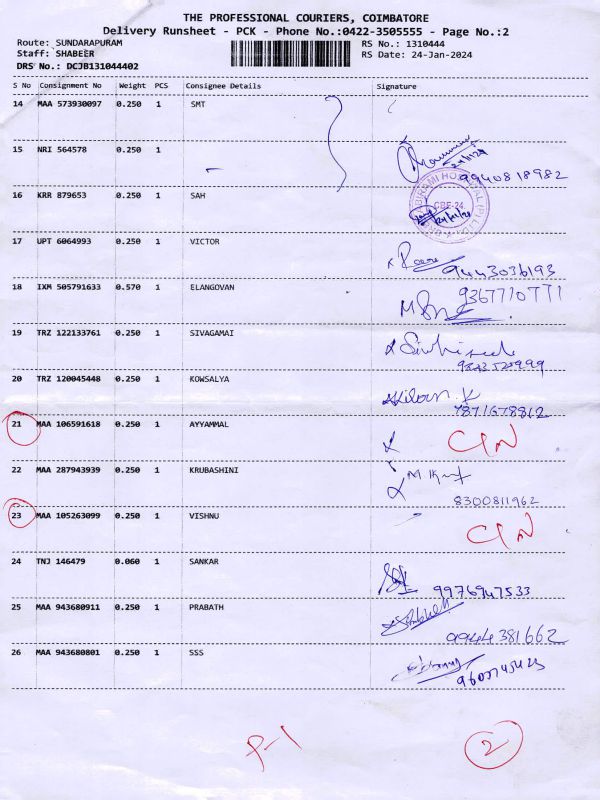 THE PROFESSIONAL COURIERS, COIMBATORE
Delivery Runsheet - PCK - Phone No.:0422-3505555 - Page No.:2
Route: SUNDARAPURAM RS No.: 1310444
Staff: SHABEER RS Date: 24-Jan-2024
DRS No.: DCJB131044402
S No Consignment No Weight PCS Consignee Details Signature
14 MAA 573930097 0.250 1 SMT
15 NRI 564578 0.250 1
9940818982
16 KRR 879653 0.250 1 SAH
CBE-24.
17 UPT 6064993 0.250 1 VICTOR
9443036193
18 IXM 505791633 0.570 1 ELANGOVAN
9367710771
19 TRZ 122133761 0.250 1 SIVAGAMAI
20 TRZ 120045448 0.250 1 KOWSALYA
7871678812
21 MAA 106591618 0.250 1 AYYAMMAL
C/N
22 MAA 287943939 0.250 1 KRUBASHINI
8300811962
23 MAA 105263099 0.250 1 VISHNU
C/N
24 TNJ 146479 0.060 1 SANKAR
9976947533
25 MAA 943680911 0.250 1 PRABATH
9944381662
26 MAA 943680801 0.250 1 SSS
P-1
2